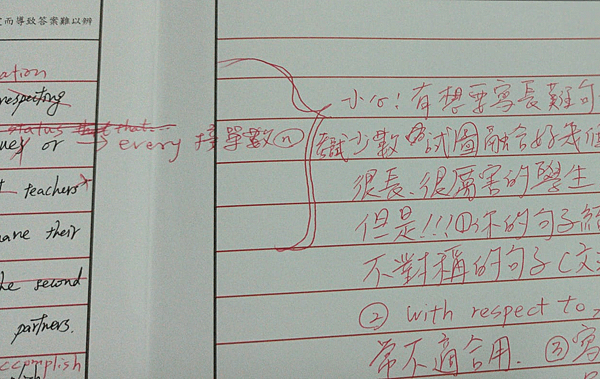 而導致答案難以辨
ation
respecting
status that that...
or → every 接單數(n)
teachers
name their
the second
partners.
ccomplish
小心!有想要寫長難句
試圖融合好幾個
很長、很厲害的學生
但是!!!①你的句子
不對稱的句子(文
② with respect to
常不適合用. ③寫